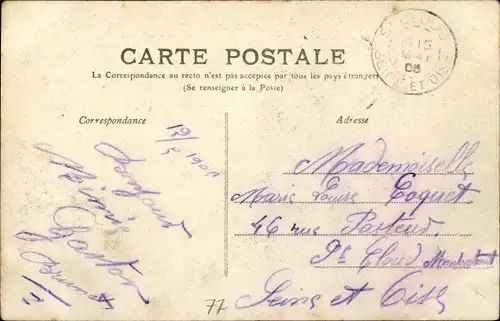 CARTE POSTALE
La Correspondance au recto n'est pas acceptée par tous les pays étrangers
(Se renseigner à la Poste)
ST CLOUD
15
08
SEINE ET OISE
Correspondance
Adresse
Bonjour
Mimi
Gaston
Mademoiselle
Marie Louise Coquet
46 rue Pasteur
St Cloud
Seine et Oise
77